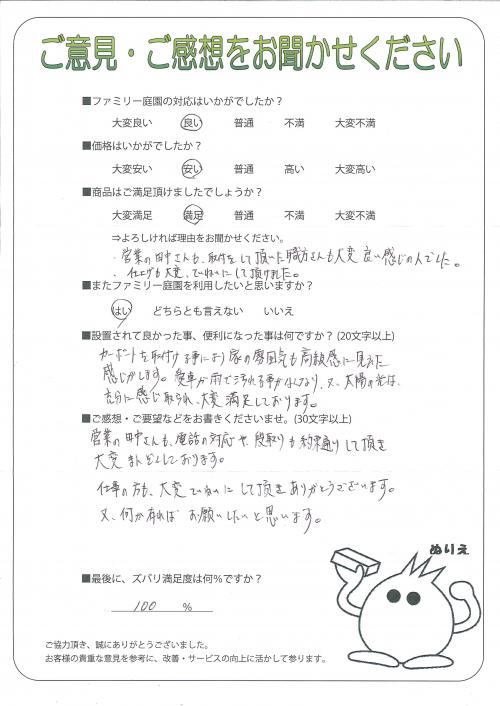 ご意見・ご感想をお聞かせください
■ファミリー庭園の対応はいかがでしたか？
大変良い 良い 普通 不満 大変不満
■価格はいかがでしたか？
大変安い 安い 普通 高い 大変高い
■商品はご満足頂けましたでしょうか？
大変満足 満足 普通 不満 大変不満
⇒よろしければ理由をお聞かせください。
・営業の田中さんも、取付をして頂いた職方さんも大変良い感じの人でした。
・仕上げも大変、ていねいにして頂けました。
■またファミリー庭園を利用したいと思いますか？
はい どちらとも言えない いいえ
■設置されて良かった事、便利になった事は何ですか？(20文字以上)
カーポートを取付ける事により家の雰囲気も高級感に見えた
感じがします。愛車が雨で汚れる事がなくなり、又、太陽の光は、
充分に感じ取られ、大変満足しております。
■ご感想・ご要望などをお書きくださいませ。(30文字以上)
営業の田中さんも、電話の対応や、段取りも約束通りして頂き
大変まんぞくしております。
仕事の方も、大変ていねいにして頂きありがとうございます。
又、何か有ればお願いしたいと思います。
ぬりえ
■最後に、ズバリ満足度は何％ですか？
100 ％
ご協力頂き、誠にありがとうございました。
お客様の貴重な意見を参考に、改善・サービスの向上に活かして参ります。